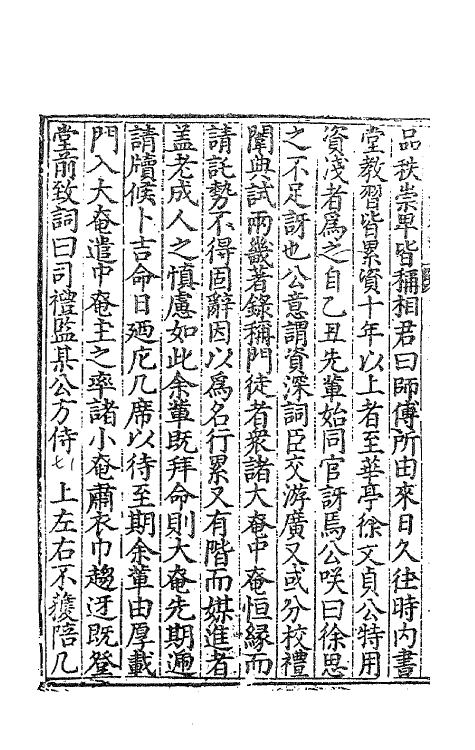 品秩崇卑皆稱相君曰師傅所由來日久往時内書
堂教習皆累資十年以上者至華亭徐文貞公特用
資淺者爲之自乙丑先輩始同官訝焉公咲曰徐思
之不足訝也公意謂資深詞臣交游廣又或分校禮
闈典試兩畿著錄稱門徒者衆諸大奄中奄恒緣而
請託勢不得固辭因以爲名行累又有階而媒進者
盖老成人之慎慮如此余輩既拜命則大奄先期遍
請牘候卜吉命日廼庀几席以待至期余輩由厚載
門入大奄遣中奄主之率諸小奄肅衣巾趨迓既登
堂前致詞曰司禮監某公方侍 上左右不獲陪几